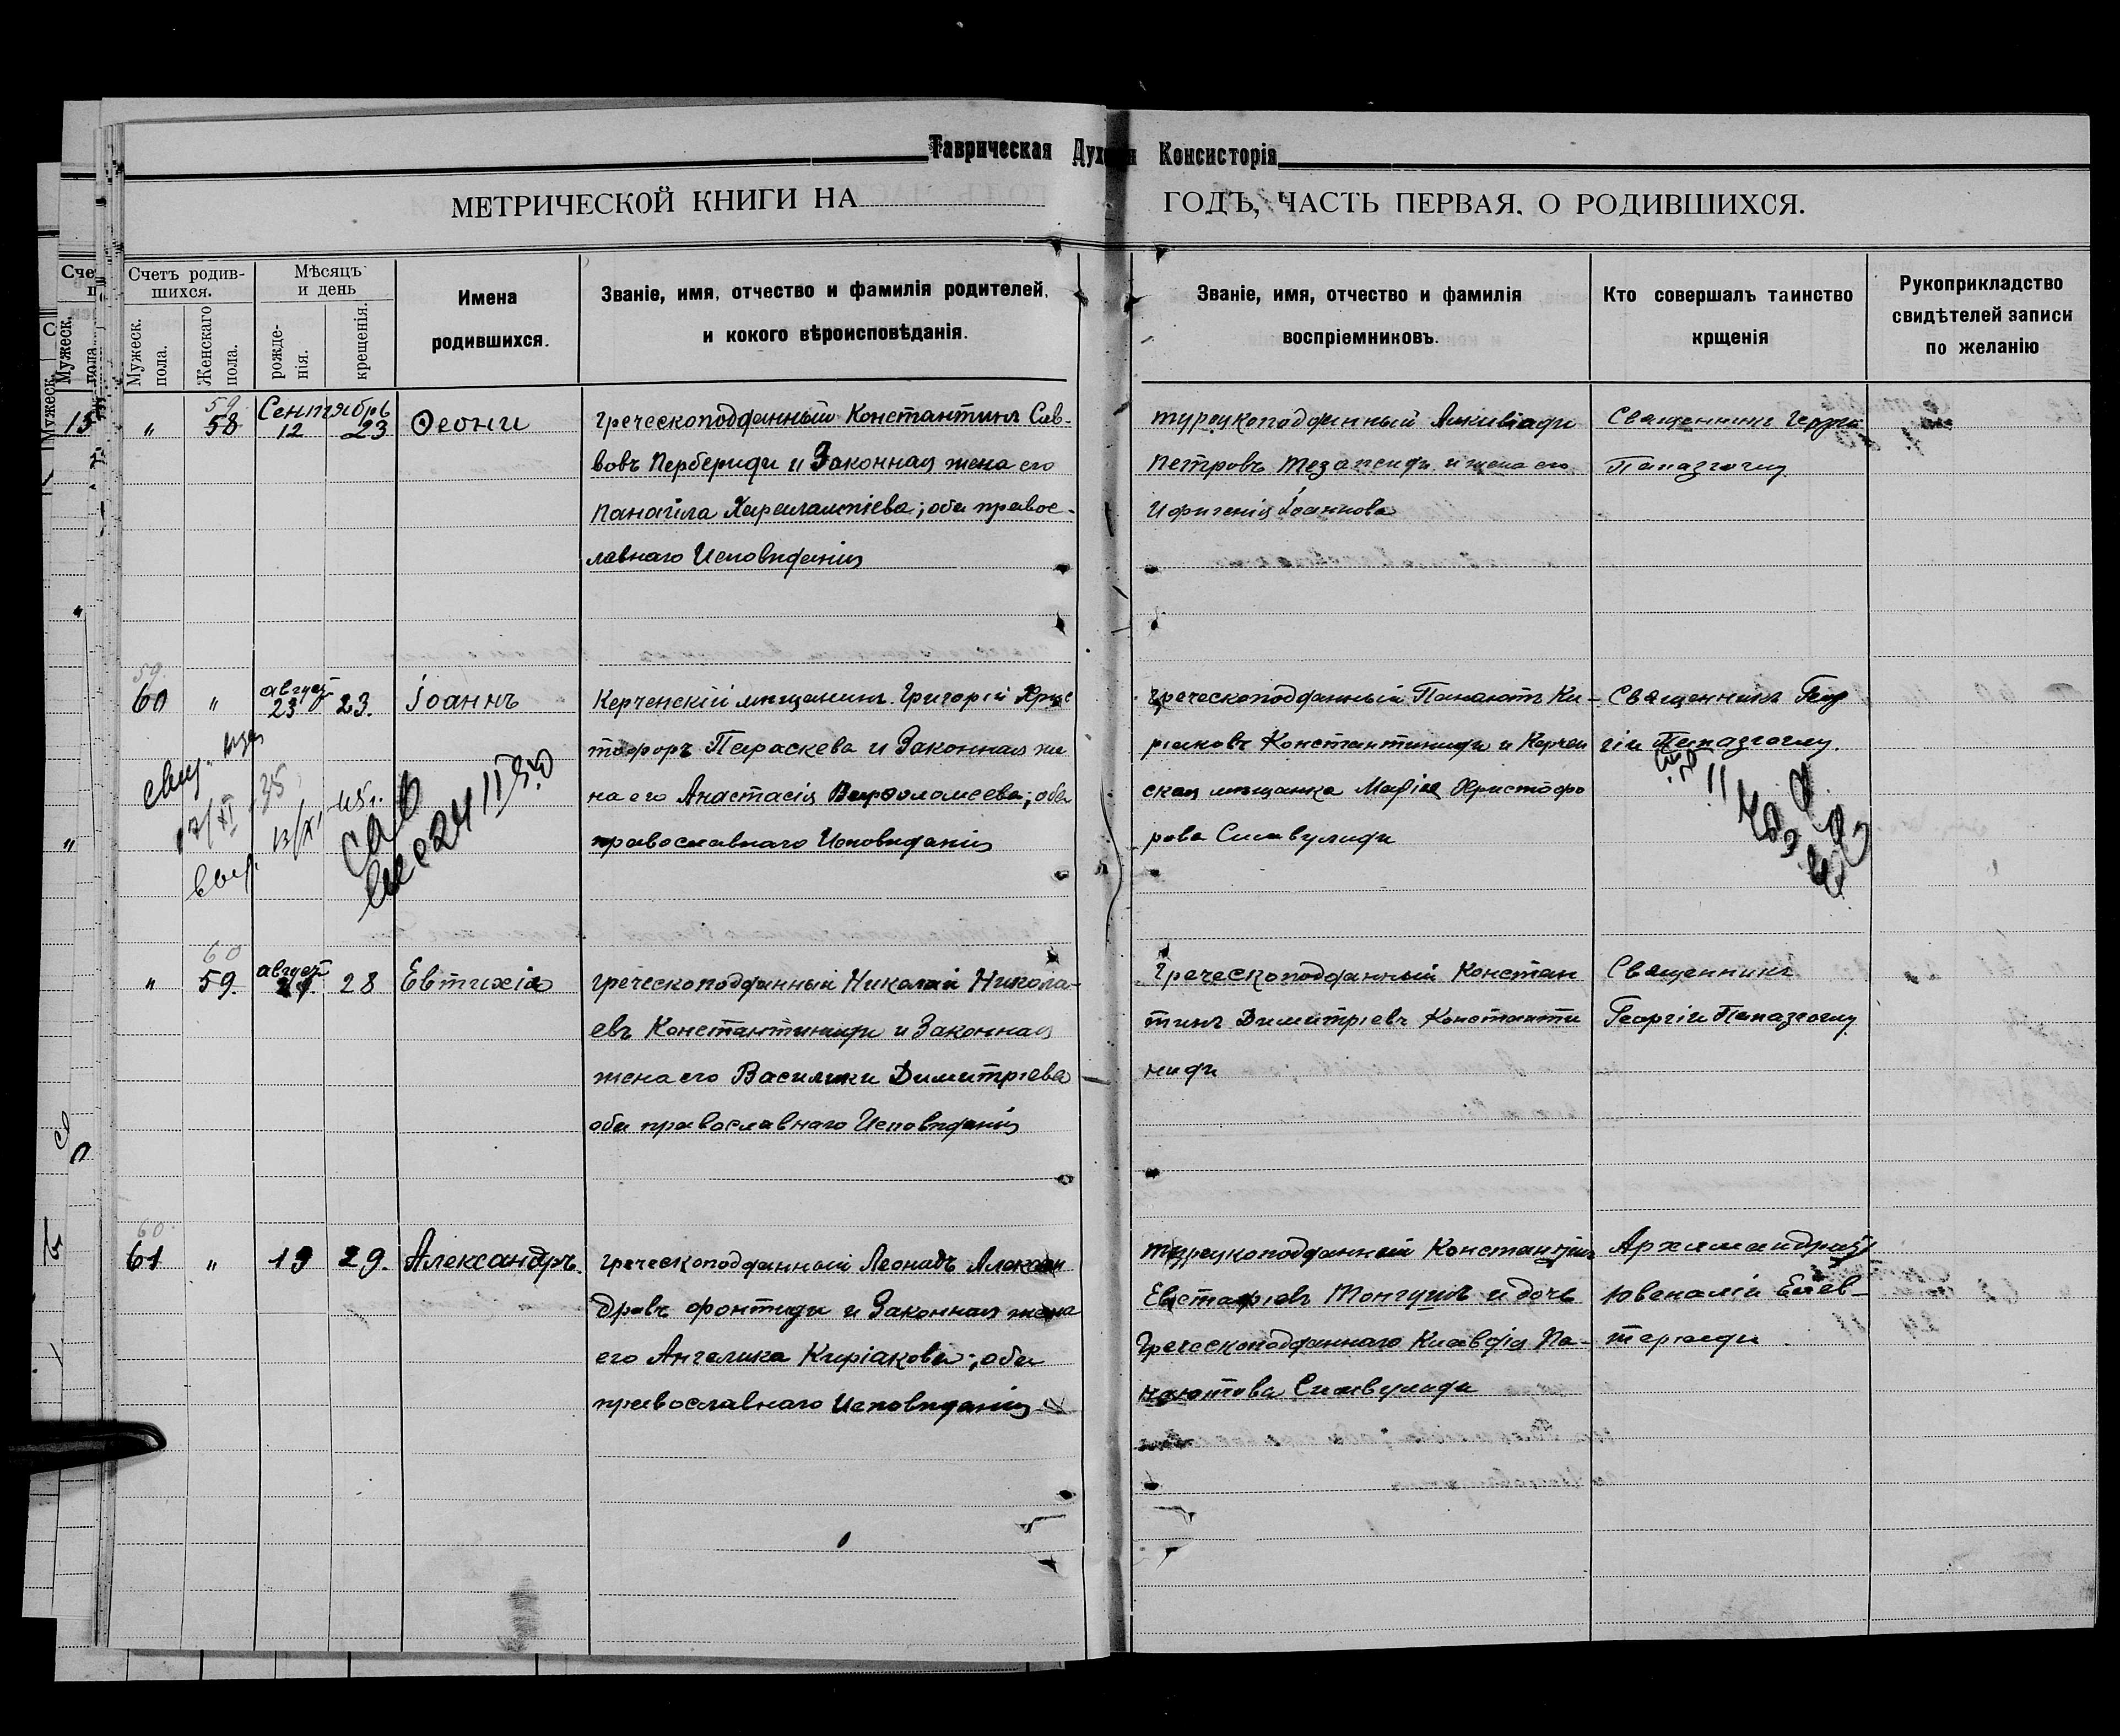 Таврическая Духовная Консисторія
МЕТРИЧЕСКОЙ КНИГИ НА ГОДЪ, ЧАСТЬ ПЕРВАЯ, О РОДИВШИХСЯ.
Счетъ родив-
шихся.
Мужеск.
пола.
Женскаго
пола.
Мѣсяцъ
и день
рожде-
нія.
крещенія.
Имена
родившихся.
Званіе, имя, отчество и фамилія родителей,
и кокого вѣроисповѣданія.
Званіе, имя, отчество и фамилія
воспріемниковъ.
Кто совершалъ таинство
крщенія
Рукоприкладство
свидѣтелей записи
по желанію
59
" 58 Сентябрь
12 23 Ѳеони
греческоподданный Константинъ Сав-
вовъ Пербериди и Законная жена его
Панагіла Харалампіева; оба правос-
лавнаго Исповѣданія
турецкоподданный Алкивіади
Петровъ Тезапсиди и жена его
Ифигенія Іоаннова
Священникъ
Папазоглу
59.
60 " август
23 23. Іоаннъ
Керченскій мѣщанинъ Григорій Хрис
тофоръ Параскева и Законная же
на его Анастасія Варѳоломеева; оба
православнаго Исповѣданія
греческоподданный Панаіотъ Ки-
ріаковъ Константиниди и Керчен
ская мѣщанка Марія Христофо
рова Симвулиди
Священникъ Геор
гіи Папазоглу.
60
" 59. август
21. 28 Евтихія
греческоподданный Николай Никола-
евъ Константиниди и Законная
жена его Василики Димитріева
оба православнаго Исповѣданія
Греческоподданный Констан
тинъ Димитріевъ Константи
ниди
Священникъ
Георгіи Папазоглу
60.
61 " 19 29. Александръ.
греческоподданный Леонидъ Алексан
дровъ Фонтиди и Законная жена
его Ангелика Киріакова; оба
православнаго Исповѣданія
турецкоподданный Константинъ
Евстафіевъ и дочь
Греческоподданнаго Клавдія Па-
наіотова Симвулиди
Архимандритъ
Ювеналій Елев-
теріади